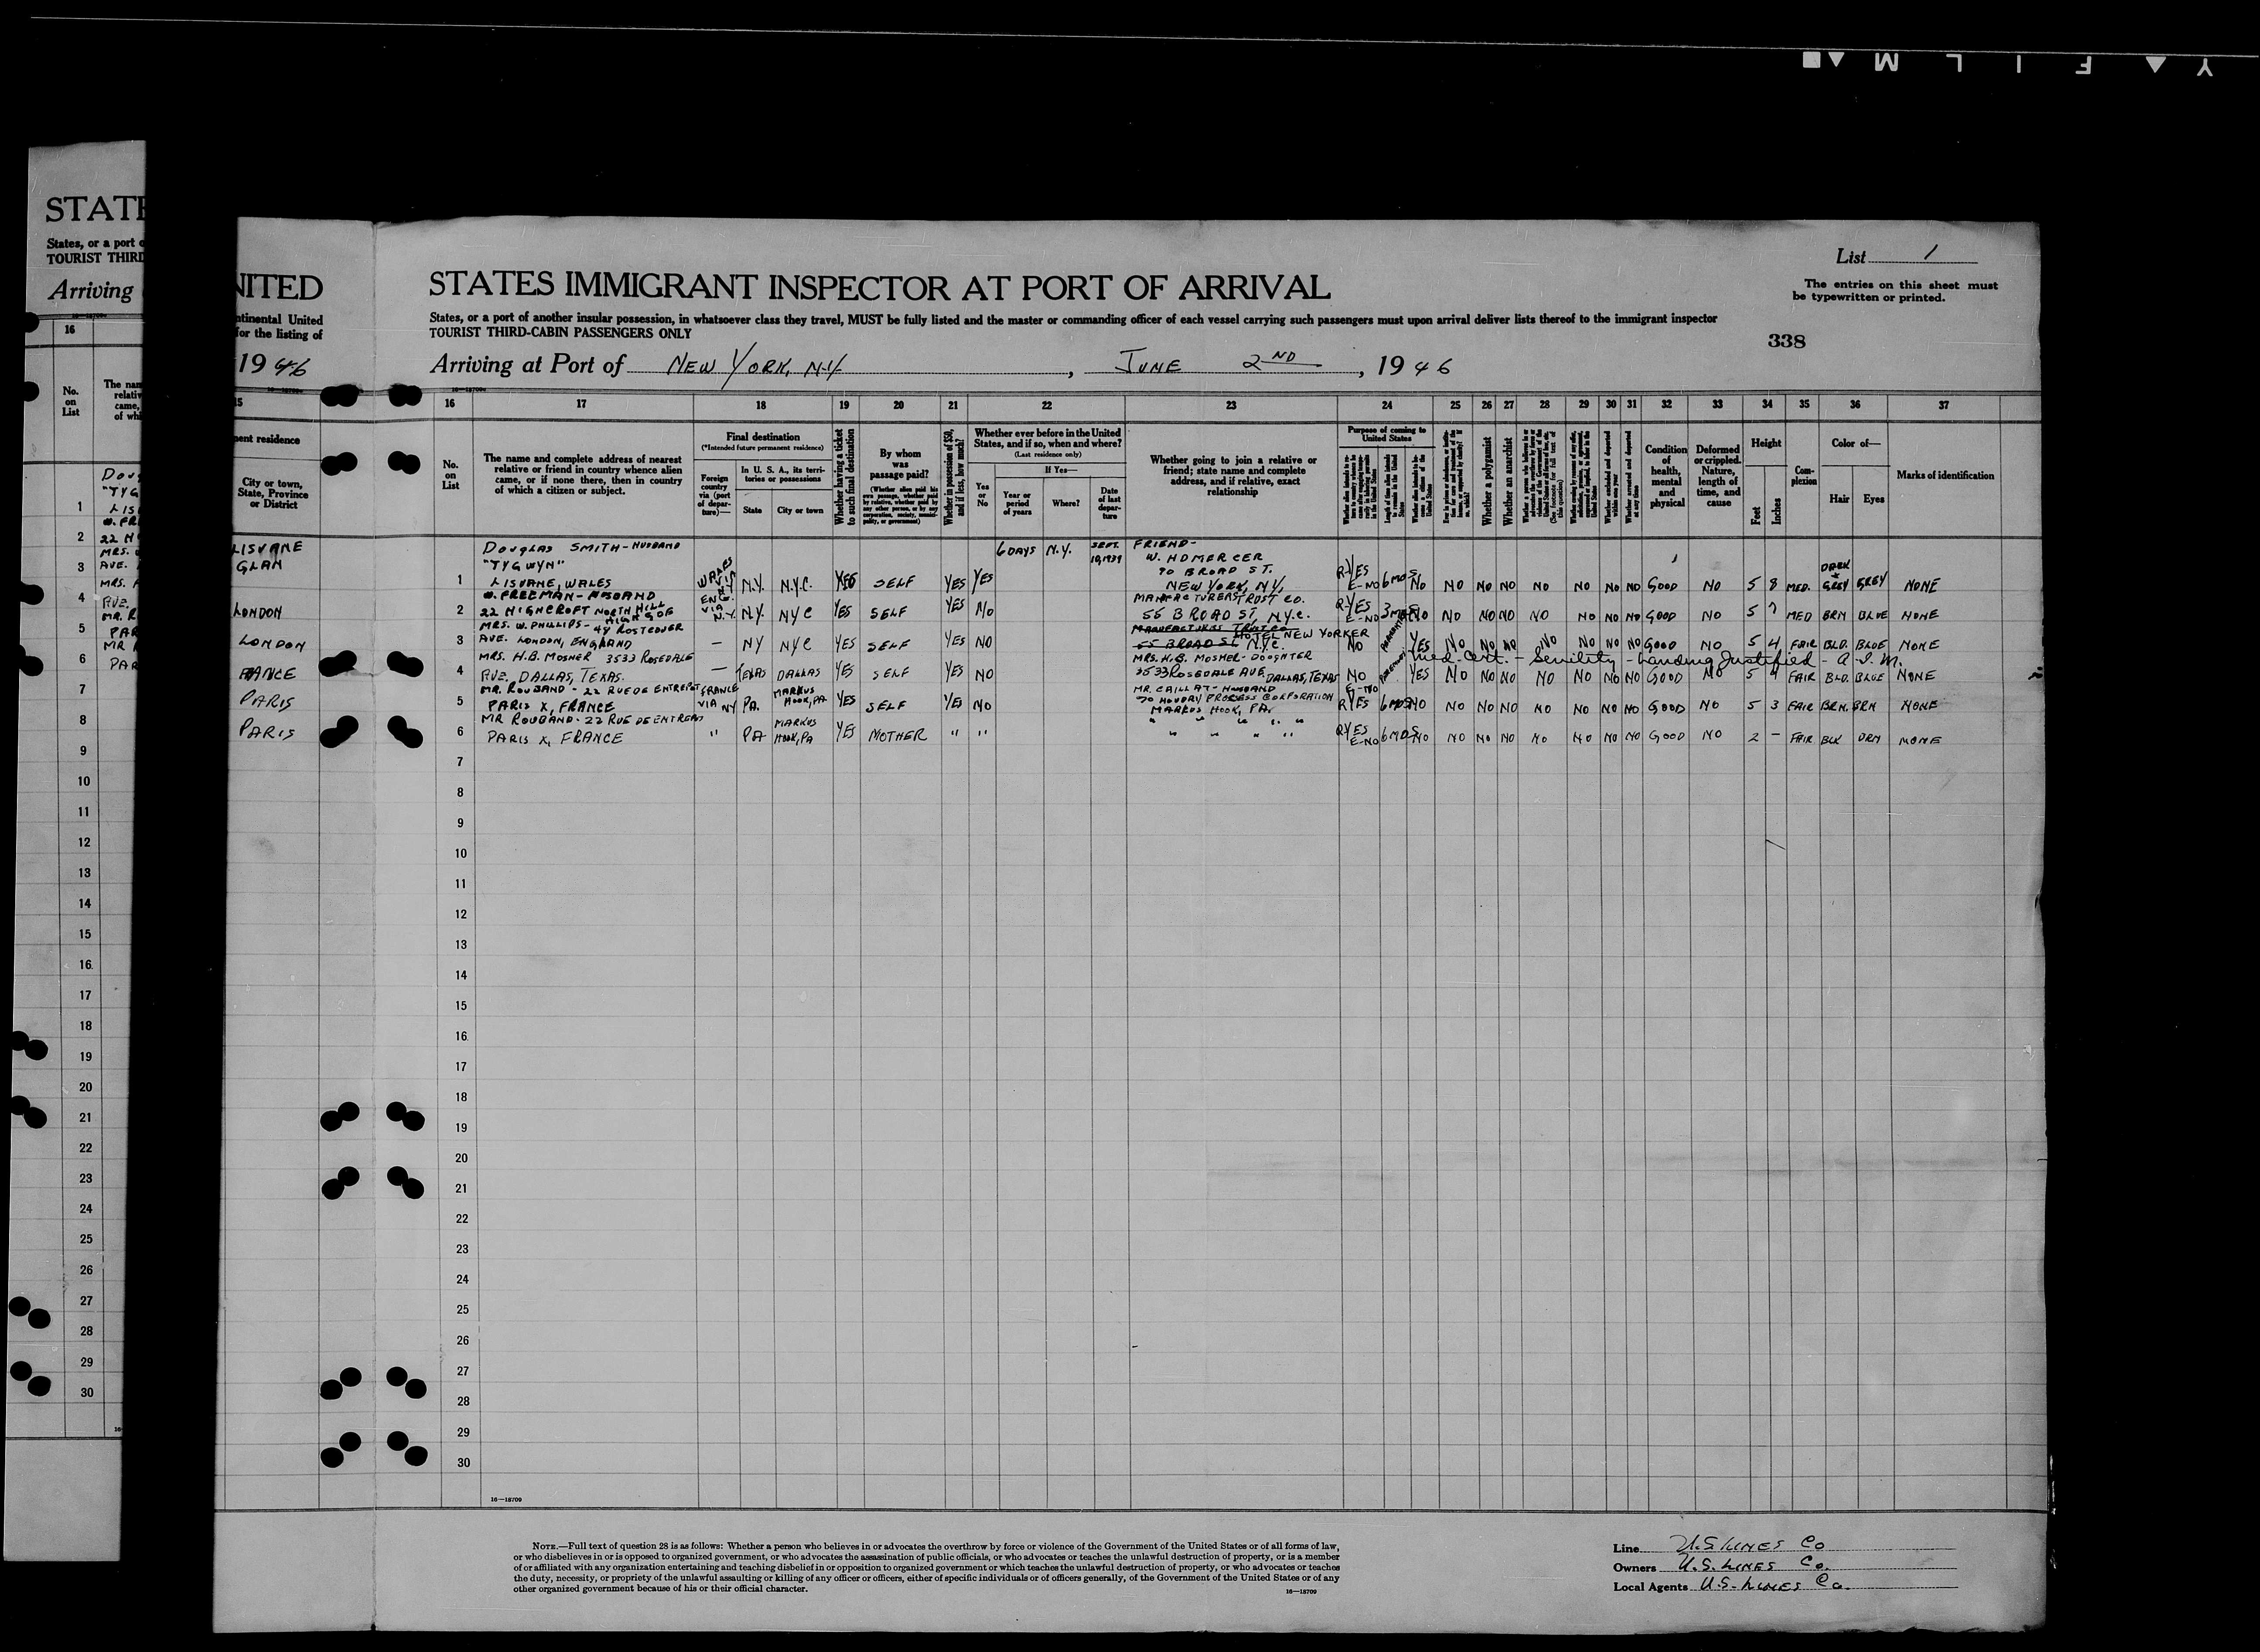 Y ▲ F I L M ▲ ■
STATE
States, or a port o
TOURIST THIRD
Arriving
16
No. on List
The nam
relativ
came,
of whi
NITED
ntinental United
for the listing of
19 46
List 1
The entries on this sheet must
be typewritten or printed.
STATES IMMIGRANT INSPECTOR AT PORT OF ARRIVAL
States, or a port of another insular possession, in whatsoever class they travel, MUST be fully listed and the master or commanding officer of each vessel carrying such passengers must upon arrival deliver lists thereof to the immigrant inspector
TOURIST THIRD-CABIN PASSENGERS ONLY
338
Arriving at Port of NEW YORK, N.Y., JUNE 2ND, 1946
15 16 17 18 19 20 21 22 23 24 25 26 27 28 29 30 31 32 33 34 35 36 37
nent residence
City or town, State, Province or District
No. on List
The name and complete address of nearest relative or friend in country whence alien came, or if none there, then in country of which a citizen or subject.
Final destination
(*Intended future permanent residence)
Foreign country via (port of departure)—
In U. S. A., its territories or possessions
State
City or town
Whether having a ticket to such final destination
By whom was passage paid?
(Whether alien paid his own passage, whether paid by relative, whether paid by any other person, or by any corporation, society, municipality, or government)
Whether in possession of $50, and if less, how much?
Whether ever before in the United States, and if so, when and where?
(Last residence only)
Yes or No
If Yes—
Year or period of years
Where?
Date of last departure
Whether going to join a relative or friend; state name and complete address, and if relative, exact relationship
Purpose of coming to United States
Whether a polygamist
Whether an anarchist
Whether excluded and deported within one year
Whether arrested and deported at any time
Condition of health, mental and physical
Deformed or crippled. Nature, length of time, and cause
Height
Feet
Inches
Complexion
Color of—
Hair
Eyes
Marks of identification
LISVANE GLAN
1 DOUGLAS SMITH-HUSBAND "TYGWYN" LISVANE, WALES WALES VIA NY N.Y. N.Y.C. YES SELF YES YES 6 DAYS N.Y. SEPT. 10,1939 FRIEND- W. HOMERCER 70 BROAD ST. NEW YORK, N.Y. R-YES E-NO 6 MOS. NO NO NO NO NO NO NO NO GOOD NO 5 8 MED. DARK & GREY GREY NONE
LONDON
2 W. FREEMAN-HUSBAND 22 HIGHCROFT NORTH HILL HIGHGATE ENG. VIA N.Y. N.Y. NYC YES SELF YES NO MANUFACTURERS TRUST CO. 55 BROAD ST, N.Y.C. R-YES E-NO 3 MOS NO NO NO NO NO NO NO NO GOOD NO 5 7 MED BRN BLUE NONE
LONDON
3 MRS. W. PHILLIPS- 48 ROSTCOVER AVE. LONDON, ENGLAND — NY NYC YES SELF YES NO MANUFACTURERS TRUST CO 55 BROAD St. N.Y.C. HOTEL NEW YORKER NO PERMANENT YES NO NO NO NO NO NO NO GOOD NO 5 4 FAIR BLD. BLUE NONE
FRANCE
4 MRS. H.B. MOSHER 3533 ROSEDALE AVE. DALLAS, TEXAS. — TEXAS DALLAS YES SELF YES NO MRS. H.B. MOSHER-DAUGHTER 3533 ROSEDALE AVE, DALLAS, TEXAS NO PERMANENT YES NO NO NO NO NO NO NO GOOD NO 5 4 FAIR BLD. BLUE NONE
Med. Cert. - Senility - Landing Justified - A.I.M.
PARIS
5 MR. ROUBAND - 22 RUE DE ENTREPOT PARIS X, FRANCE FRANCE VIA NY PA. MARKUS HOOK, PA YES SELF YES NO MR. CAILLAT-HUSBAND % HOUDRY PROCESS CORPORATION MARKUS HOOK, PA. E-NO R YES 6 MOS NO NO NO NO NO NO NO NO GOOD NO 5 3 FAIR BRN. BRN NONE
PARIS
6 MR ROUBAND-22 RUE DE ENTREPOT PARIS X, FRANCE " PA MARKUS HOOK, PA YES MOTHER " " " " " " " R YES E-NO 6 MOS NO NO NO NO NO NO NO NO GOOD NO 2 – FAIR BLK BRN NONE
7
8
9
10
11
12
13
14
15
16
17
18
19
20
21
22
23
24
25
26
27
28
29
30
16—18709
NOTE.—Full text of question 28 is as follows: Whether a person who believes in or advocates the overthrow by force or violence of the Government of the United States or of all forms of law,
or who disbelieves in or is opposed to organized government, or who advocates the assassination of public officials, or who advocates or teaches the unlawful destruction of property, or is a member
of or affiliated with any organization entertaining and teaching disbelief in or opposition to organized government or which teaches the unlawful destruction of property, or who advocates or teaches
the duty, necessity, or propriety of the unlawful assaulting or killing of any officer or officers, either of specific individuals or of officers generally, of the Government of the United States or of any
other organized government because of his or their official character.
16—18709
Line U.S LINES Co
Owners U.S. LINES Co.
Local Agents U.S. LINES Co.